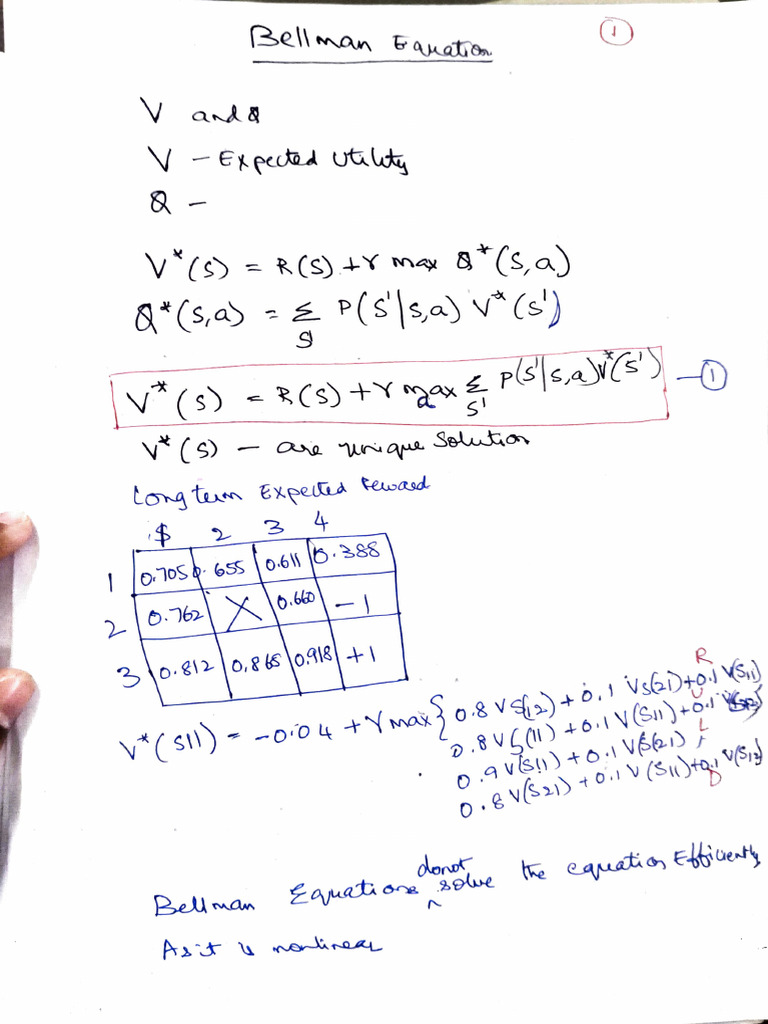 Bellman Equation
①
V and Q
V - Expected Utility
Q -
V*(S) = R(S) + γ max Q*(S,a)
Q*(S,a) = Σ P(S'|S,a) V*(S')
S'
V*(S) = R(S) + γ max Σ P(S'|S,a) V*(S') — ①
a S'
V*(S) — are unique solution
Long term Expected Reward
$ 2 3 4
1 0.705 0.655 0.611 0.388
2 0.762 X 0.660 -1
3 0.812 0.865 0.918 +1
R
V*(S11) = -0.04 + γ max { 0.8 VS(12) + 0.1 VS(21) + 0.1 V(S11)
U
0.8 VS(11) + 0.1 V(S11) + 0.1
L
0.9 V(S11) + 0.1 V(S21)
0.8 V(S21) + 0.1 V(S11) + 0.1 V(S12)
D
donot
Bellman Equations ^ solve the equation Efficiently
As it is nonlinear